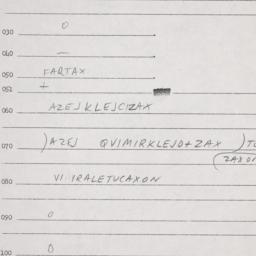 030 0
040 —
050 FARTAX
051 +
060 AZEJKLEJCIZAX
070 )AZEJ QVIMIRKLEJO+ZAX )TU
(ZAXON
080 VI IRALETUCAXON
090 0
100 0